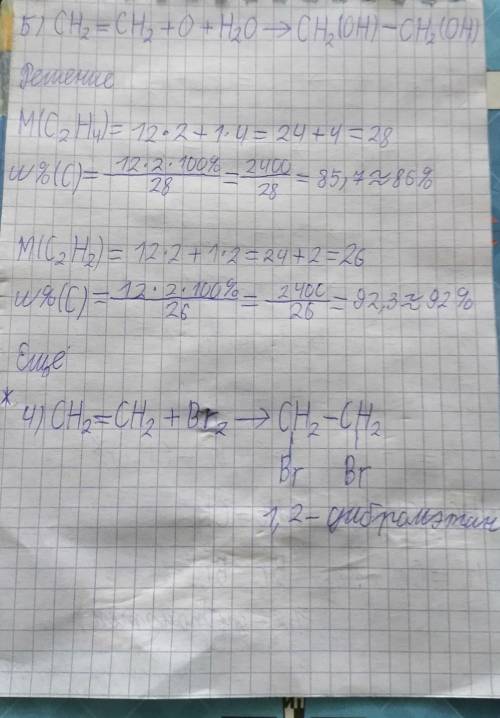 5) CH₂ = CH₂ + O + H₂O → CH₂(OH) – CH₂(OH)
Решение
M(C₂H₄) = 12·2 + 1·4 = 24 + 4 = 28
w%(C) = 12·2·100% / 28 = 2400 / 28 = 85,7 ≈ 86%
M(C₂H₂) = 12·2 + 1·2 = 24 + 2 = 26
w%(C) = 12·2·100% / 26 = 2400 / 26 = 92,3 ≈ 92%
Ещё
* 4) CH₂ = CH₂ + Br₂ → CH₂ – CH₂
Br Br
1,2 – дибромэтан